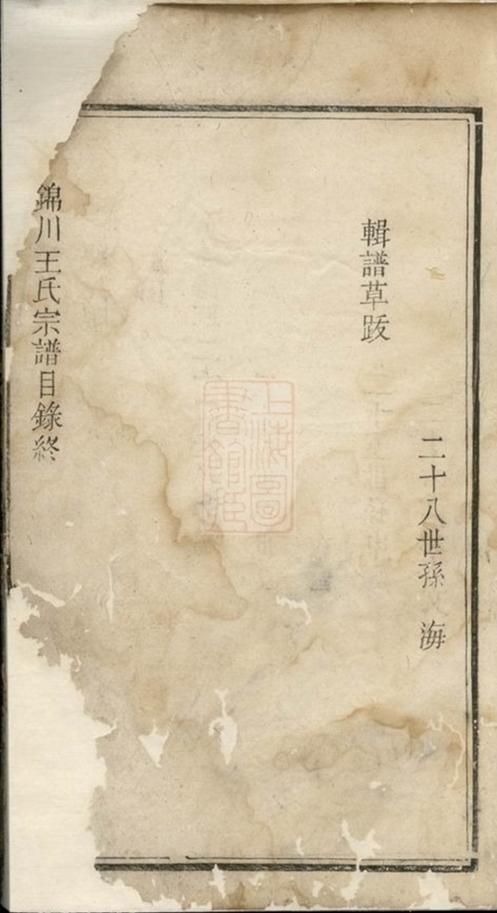 二十八世孫 海
輯譜草跋
錦川王氏宗譜目錄終
上海圖書館藏